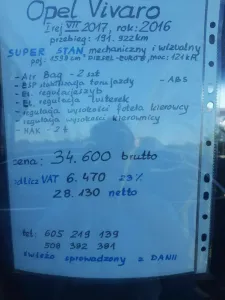 Opel Vivaro
1rej VII 2017, rok: 2016
przebieg: 191.922km
SUPER STAN mechaniczny i wizualny
poj: 1598cm³ DIESEL-EURO6 moc: 121kM
- Air Bag - 2 szt
- ABS
- ESP stabilizacja toru jazdy
- el. regulacja szyb
- El. regulacja lusterek
- regulacja wysokości fotela kierowcy
- regulacja wysokości kierownicy
- HAK - 2t
cena: 34.600 brutto
VAT 6.470 23%
28.130 netto
tel: 605 219 139
509 392 391
świeżo sprowadzony z DANII